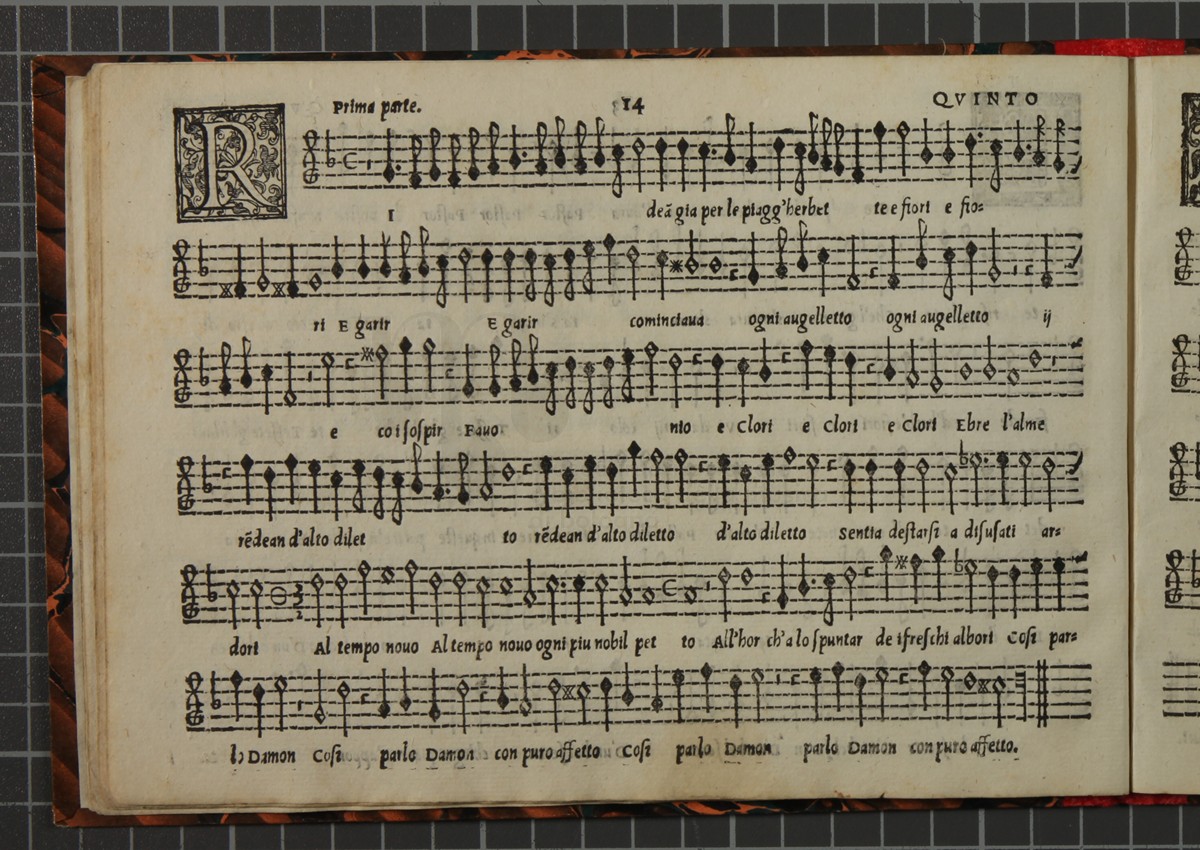 Prima parte. 14 QVINTO
R I deā gia per le piagg'herbet te e fiori e fio-
ri E garir E garir cominciaua ogni augelletto ogni augelletto ij
e co i sospir Fauo nio e Clori e Clori e Clori Ebre l'alme
rēdean d'alto dilet to rēdean d'alto diletto d'alto diletto Sentia destarsi a disusati ar-
dori Al tempo nouo Al tempo nouo ogni piu nobil pet to All'hor ch'a lo spuntar de i freschi albori Cosi par-
lo Damon Cosi parlo Damon con puro affetto Cosi parlo Damon parlo Damon con puro affetto.